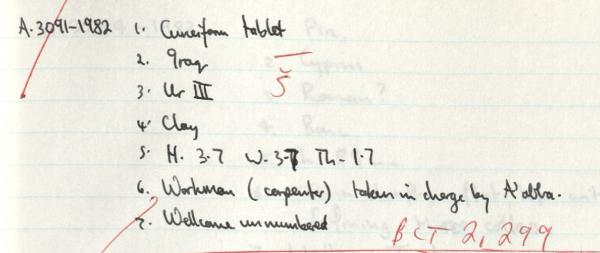 A.3091-1982 1. Cuneiform tablet
2. Iraq
3. Ur III
4. Clay
5. H. 3.7 W. 3.7 Th-1.7
6. Workman (carpenter) taken in charge by A'abba.
7. Wellcome unnumbered
BCT 2, 299